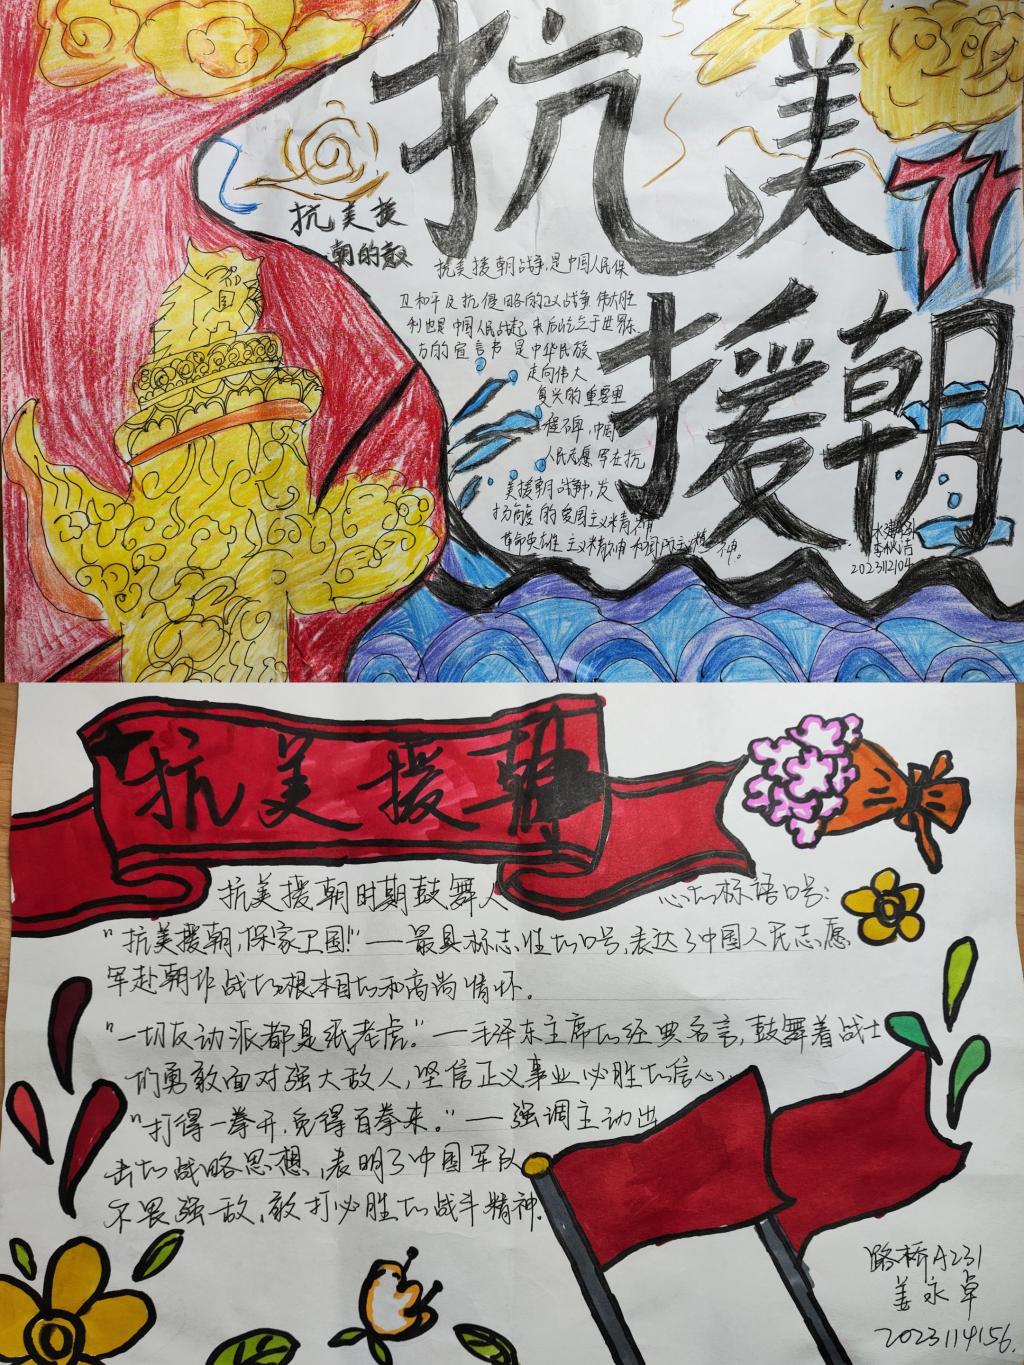 抗美
援朝
抗美援
朝的敌
抗美援朝战争是中国人民保
卫和平反抗侵略的正义战争,伟大胜
利也是中国人民战起来后屹立于世界东
方的宣言书 是中华民族
走向伟大
复兴的重要里
程碑,中国
人民志愿军在抗
美援朝战争中,发
扬 的爱国主义精神
革命英雄主义精神和国际主义精神。
2023112104
抗美援朝
抗美援朝时期鼓舞人
心的标语口号:
"抗美援朝,保家卫国!"——最具标志性的口号,表达了中国人民志愿
军赴朝作战的根本目的和高尚情怀。
"一切反动派都是纸老虎。"——毛泽东主席的经典名言,鼓舞着战士
们勇敢面对强大敌人,坚信正义事业必胜的信心。
"打得一拳开,免得百拳来。"——强调主动出
击的战略思想,表明了中国军队
不畏强敌、敢打必胜的战斗精神。
路桥A231
姜永卓
2023114156.